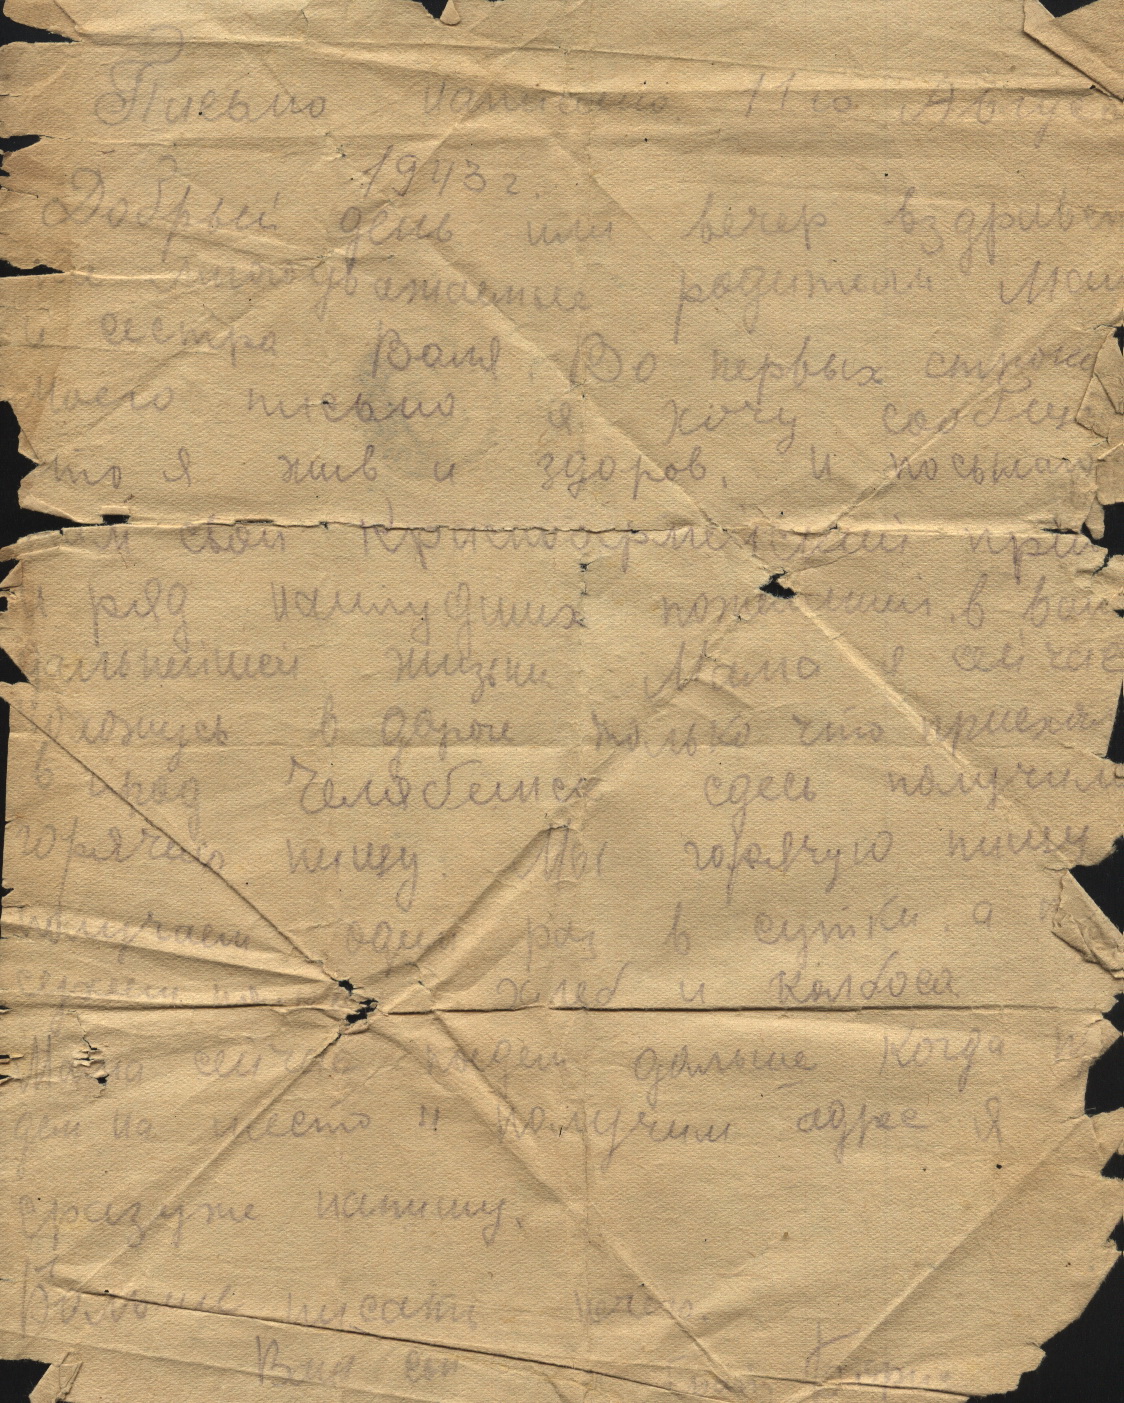 Письмо написано 11го Август
1943 г.
Добрый день или вечер вздравст
многоуважаемые родители Мои
и сестра Валя. Во первых строка
Моего письмо я хочу сообщ
то я жив и здоров. И посылаю
свой Красноармейский при
и ряд наилудших пожеланий в ваш
дальнейшей жизни Мама я сейчас
нахожусь в дороге только что приехали
в град Челябенск сдесь получили
горячею пищу. Мы горячую пищу
получаем один раз в сутки. а
хлеб и колбоса
Мама сейчас дальше когда
дем на место и получим адрес я
сразуже напишу.
Больше писать нечего.
Ваш сын Борис